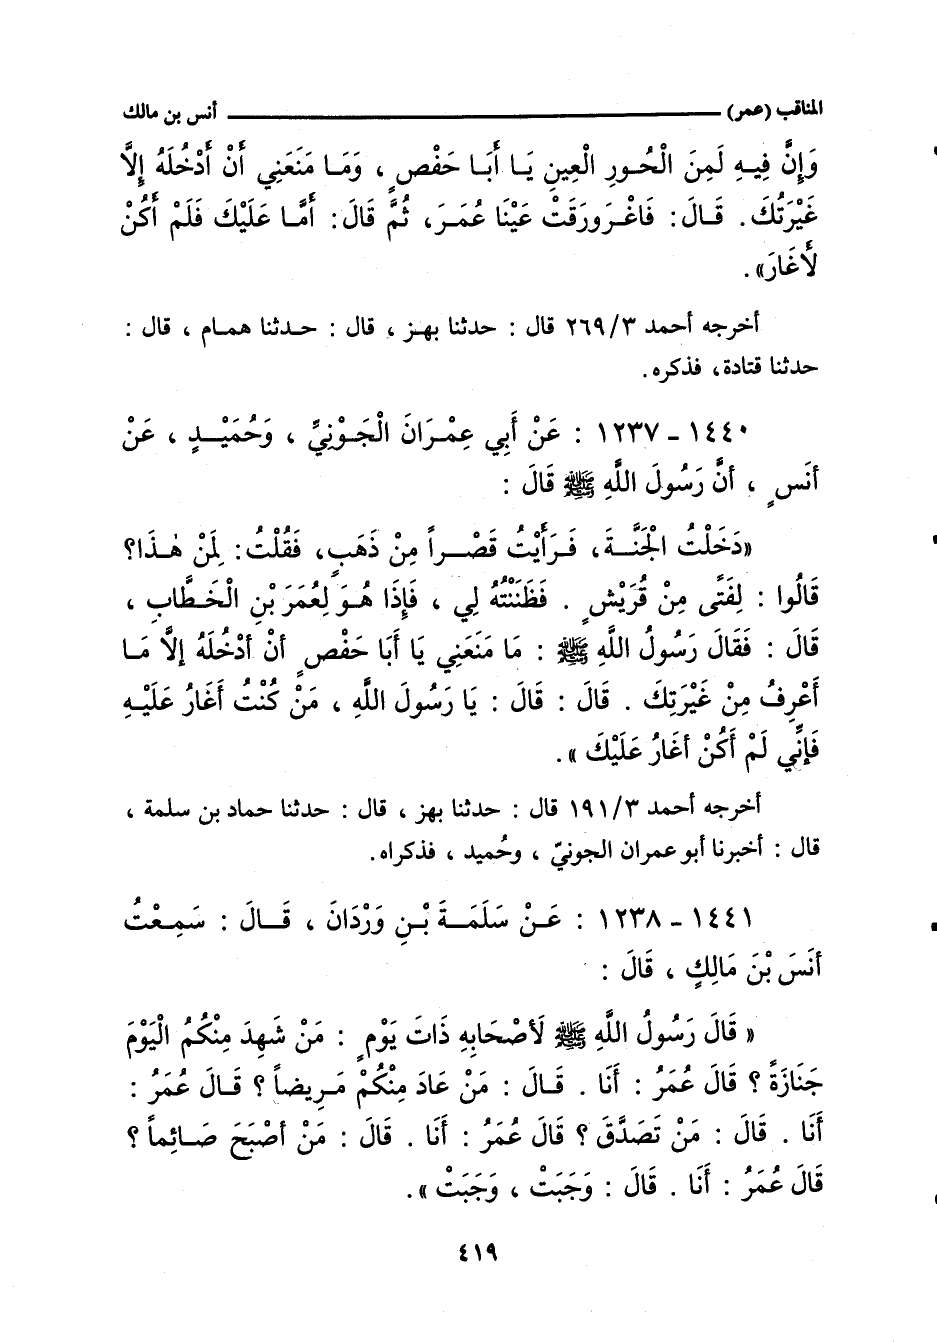 المناقب (عمر) ــــــــــــ أنس بن مالك
وَإِنَّ فِيـهِ لَمِنَ الْحُـورِ الْعِينِ يَـا أَبَـا حَفْصٍ ، وَمَـا مَنَعَنِي أَنْ أَدْخُلَهُ إِلَّا
غَيْرَتُكَ. قَـالَ: فَاغْـرَورَقَتْ عَيْنَا عُمَـرَ، ثُمَّ قَالَ: أَمَّـا عَلَيْكَ فَلَمْ أَكُنْ
لأَغَارَ».
أخرجه أحمد ٢٦٩/٣ قال : حدثنا بهـز ، قال : حـدثنا همـام ، قال :
حدثنا قتادة، فذكره.
١٤٤٠ - ١٢٣٧ : عَنْ أَبِي عِمْـرَانَ الْجَـوْنِيِّ ، وَحُمَيْـدٍ ، عَنْ
أَنَسٍ ، أَنَّ رَسُولَ اللَّهِ ﷺ قَالَ :
«دَخَلْتُ الْجَنَّـةَ، فَـرَأَيْتُ قَصْـراً مِنْ ذَهَبٍ، فَقُلْتُ: لِمَنْ هٰـذَا؟
قَالُوا : لِفَتًى مِنْ قُرَيْشٍ . فَظَنَنْتُهُ لِي ، فَإِذَا هُـوَ لِعُمَرَ بْنِ الْخَـطَّابِ ،
قَالَ : فَقَالَ رَسُولُ اللَّهِ ﷺ : مَا مَنَعَنِي يَا أَبَا حَفْصٍ أَنْ أَدْخُلَهُ إِلَّا مَـا
أَعْرِفُ مِنْ غَيْرَتِكَ . قَالَ : قَالَ : يَا رَسُولَ اللَّهِ ، مَنْ كُنْتُ أَغَارُ عَلَيْـهِ
فَإِنِّي لَمْ أَكُنْ أَغَارُ عَلَيْكَ ».
أخرجه أحمد ١٩١/٣ قال : حدثنا بهز ، قال : حدثنا حماد بن سلمة ،
قال : أخبرنا أبو عمران الجونيّ ، وحُميد ، فذكراه.
١٤٤١ - ١٢٣٨ : عَـنْ سَلَمَـةَ بْـنِ وَرْدَانَ ، قَـالَ : سَمِـعْتُ
أَنَسَ بْنَ مَالِكٍ ، قَالَ :
« قَالَ رَسُولُ اللَّهِ ﷺ لَأَصْحَابِهِ ذَاتَ يَوْمٍ : مَنْ شَهِدَ مِنْكُمُ الْيَوْمَ
جَنَازَةً ؟ قَالَ عُمَرُ : أَنَا . قَـالَ : مَنْ عَادَ مِنْكُمْ مَـرِيضاً ؟ قَـالَ عُمَرُ :
أَنَا . قَالَ : مَنْ تَصَدَّقَ ؟ قَالَ عُمَرُ : أَنَا . قَالَ : مَنْ أَصْبَحَ صَـائِماً ؟
قَالَ عُمَرُ : أَنَا . قَالَ : وَجَبَتْ ، وَجَبَتْ ».
٤١٩